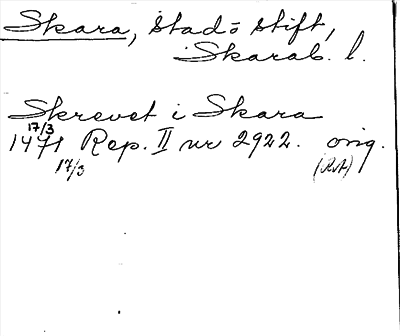 Skara, stad o stift,
Skarab. l.
Skrevet i Skara
17/3
1471 Rep. II nr 2922. orig.
17/3 (RA)